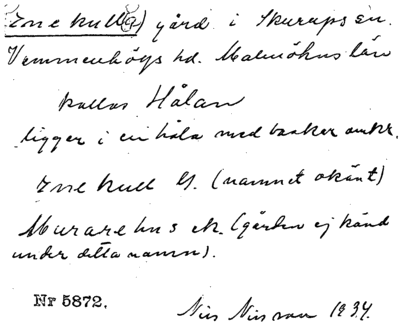 Enekulla) gård i Skurups sn.
Vemmenhögs hd. Malmöhus län
kallas Hålan
ligger i en håla med backar omkr.
Enekull G. (namnet okänt)
Murarehus ek. (gården ej känd
under detta namn).
Nr 5872.
Nils Nilsson 1934.